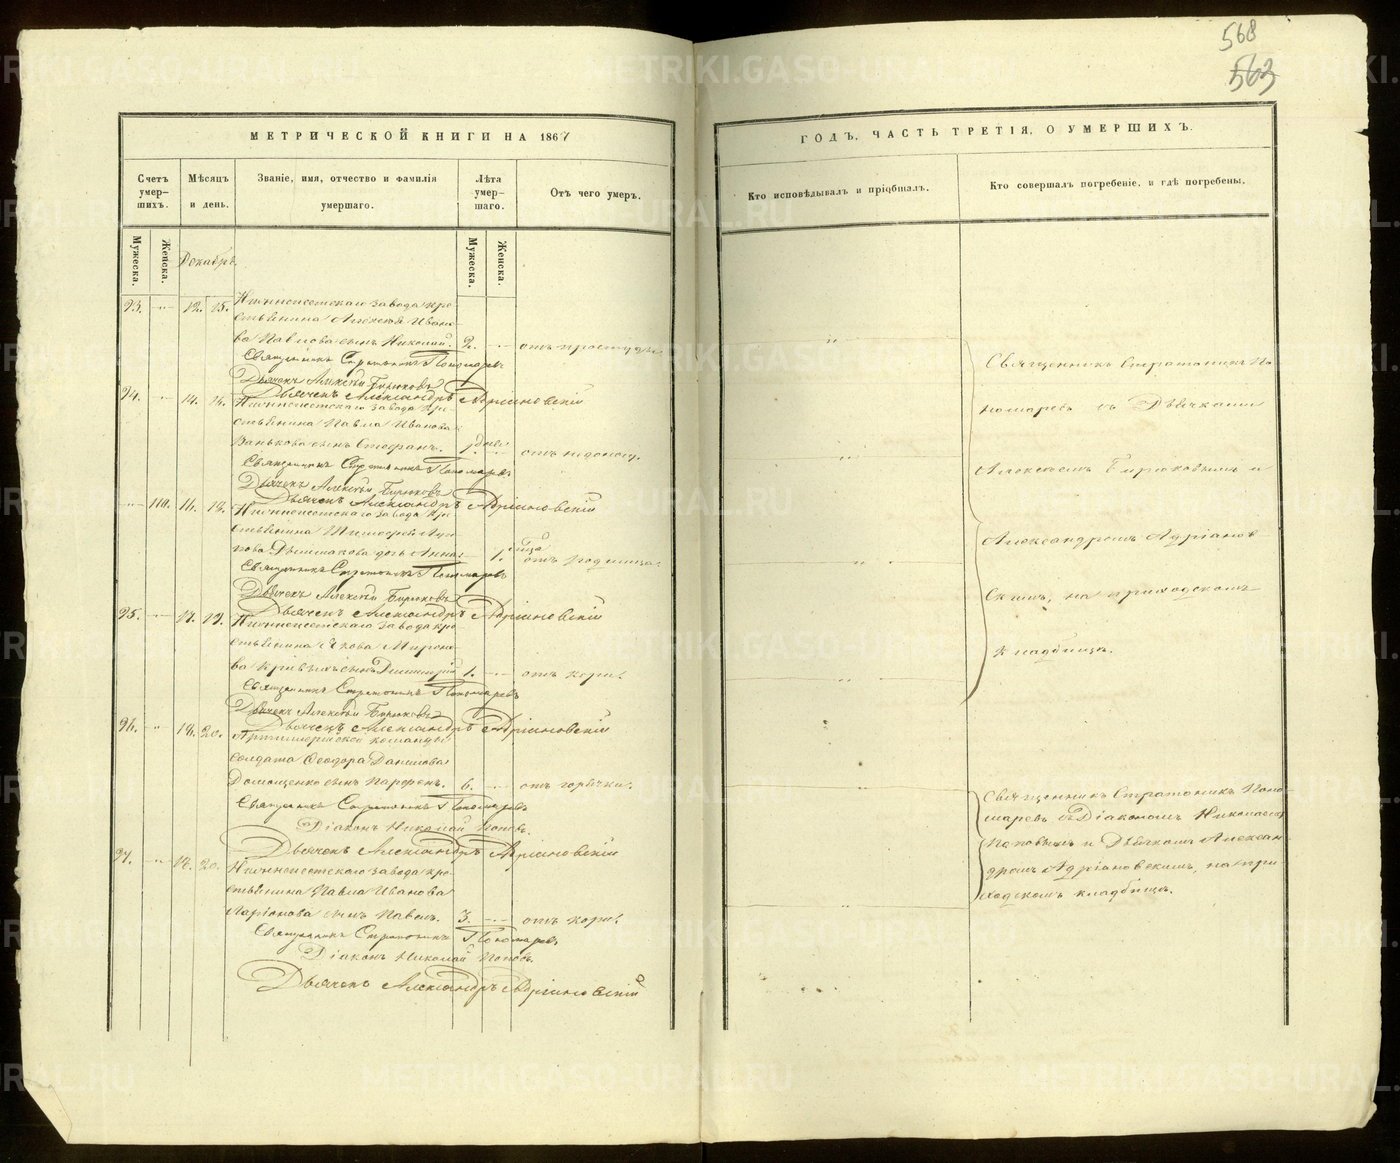 568
563
МЕТРИЧЕСКОЙ КНИГИ НА 1867
ГОДЪ, ЧАСТЬ ТРЕТІЯ, О УМЕРШИХЪ.
Счетъ умер-шихъ.
Мѣсяцъ и день.
Званіе, имя, отчество и фамилія умершаго.
Лѣта умер-шаго.
Отъ чего умеръ.
Кто исповѣдывалъ и пріобщалъ.
Кто совершалъ погребеніе, и гдѣ погребены.
Мужеска.
Женска.
Декабрь.
Мужеска.
Женска.
93. 12. 15. Нижнеисетскаго завода кре-
стьянина Алексѣя Ивано-
ва Павлова сынъ Николай. 2. отъ простуды
Священникъ Стратоникъ Пономаревъ
Дьячекъ Алексѣй Бирюковъ
Дьячекъ Александръ Адріановскій
94. 14. 16. Нижнеисетскаго завода кре-
стьянина Павла Иванова
сынъ Стефанъ. 1 дня
Священникъ Стратоникъ Пономаревъ
Дьячекъ Алексѣй Бирюковъ
Дьячекъ Александръ Адріановскій
110. 16. 18. Нижнеисетскаго завода кре-
стьянина Тимофея
дочь Анна. 1. отъ родимца.
Священникъ Стратоникъ Пономаревъ
Дьячекъ Алексѣй Бирюковъ
Дьячекъ Александръ Адріановскій
95. 17. 19. Нижнеисетскаго завода кре-
стьянина Якова Мироно-
ва сынъ Димитрій 1. отъ кори.
Священникъ Стратоникъ Пономаревъ
Дьячекъ Алексѣй Бирюковъ
Дьячекъ Александръ Адріановскій
96. 18. 20. Артиллерійской команды
солдата Ѳеодора Данилова
Домощенко сынъ Парфенъ. 6. отъ горячки.
Священникъ Стратоникъ Пономаревъ
Діаконъ Николай Поповъ.
Дьячекъ Александръ Адріановскій
97. 18. 20. Нижнеисетскаго завода кре-
стьянина Павла Иванова
Ларіонова сынъ Павелъ. 3. отъ кори.
Священникъ Стратоникъ Пономаревъ
Діаконъ Николай Поповъ.
Дьячекъ Александръ Адріановскій
Священникъ Стратоникъ По-
номаревъ съ Дьячками
Алексѣемъ Бирюковымъ и
Александромъ Адріанов-
скимъ, на приходскомъ
кладбищѣ.
Священникъ Стратоникъ Поно-
маревъ съ Діакономъ Николаемъ
Поповымъ и Дьячкомъ Алексан-
дромъ Адріановскимъ, на при-
ходскомъ кладбищѣ.
METRIKI.GASO-URAL.RU